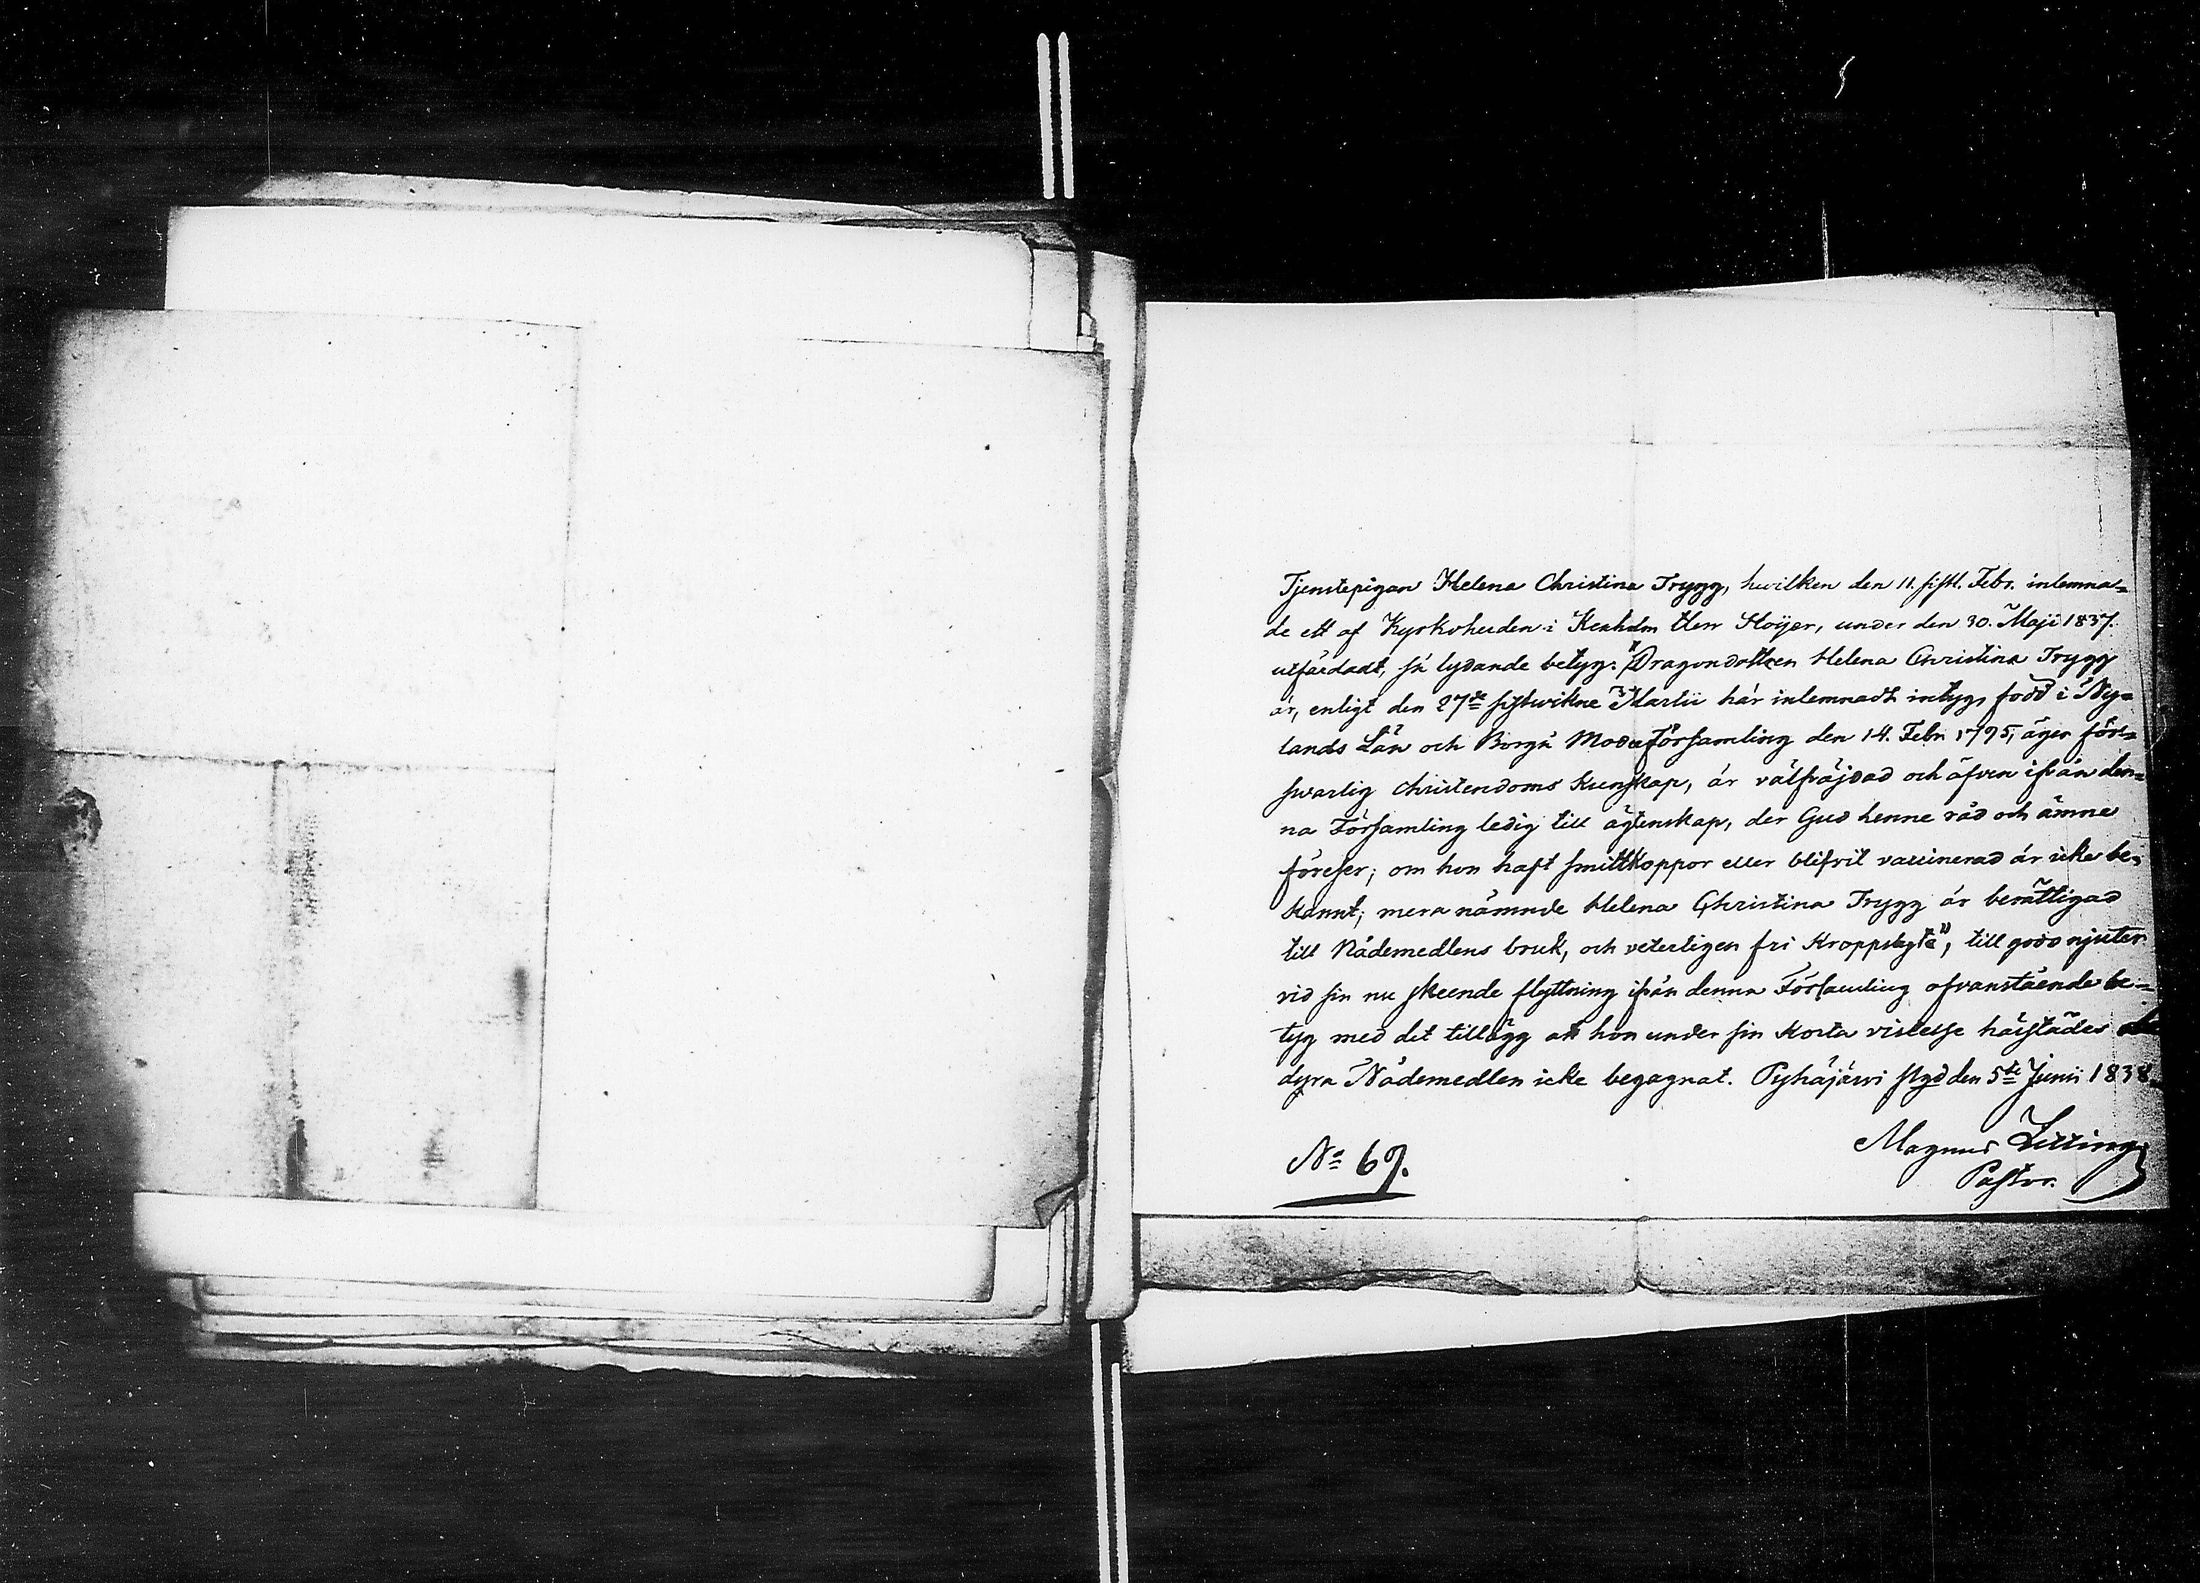 Tjenstepigan Helena Christina Trygg, hwilken den 11. sistl. Febr. inlemna=
de ett af Kyrkoherden i Kexholm Herr Höijer, under den 30. Maji 1837.
utfärdadt, så lydande betyg: "Dragondottren Helena Christina Trygg
är, enligt den 27de sistwikne Martii här inlemnadt intyg, född i Ny=
lands Län och Borgå Moderförsamling den 14. Febr. 1795, äger för=
swarlig christendoms kunskap, är välfräjdad och äfven ifrån den=
na Församling ledig till ägtenskap, der Gud henne råd och ämne
föreser; om hon haft smittkoppor eller blifvit vaccinerad är icke be=
kannt; mera nämnde Helena Christina Trygg är berättigad
till Nådemedlens bruk, och veterligen fri Kroppslyte", till godo njuter
vid sin nu skeende flyttning ifrån denna Församling ofvanstående be=
tyg med det tillägg att hon under sin korta vistelse härstädes
dyra Nådemedlen icke begagnat. Pyhäjärvi Pgd den 5te Junii 1838.
Magnus
Pastor.
No 69.